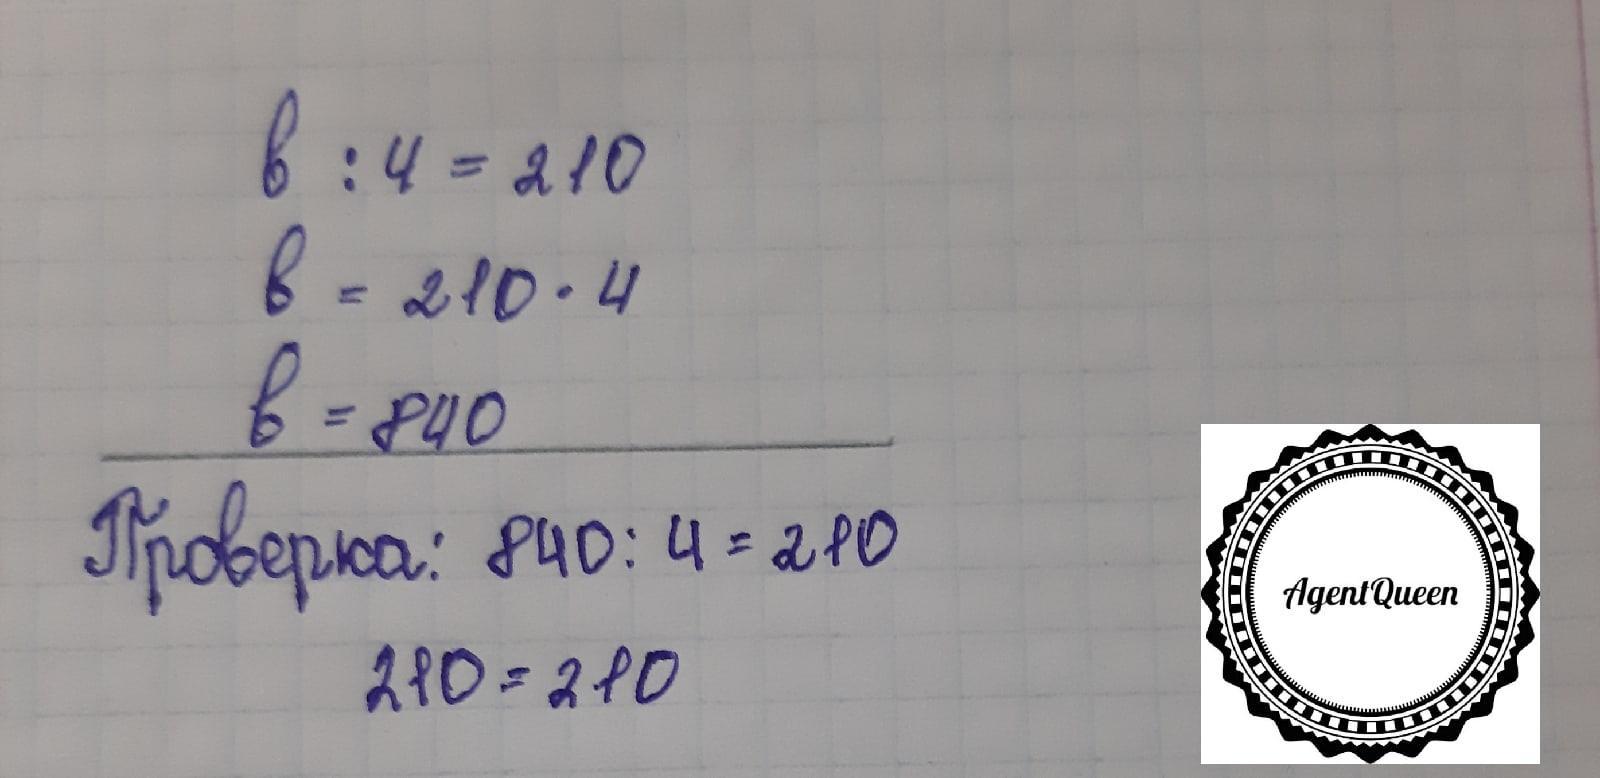 в : 4 = 210
в = 210 · 4
в = 840
Проверка: 840 : 4 = 210
210 = 210
AgentQueen